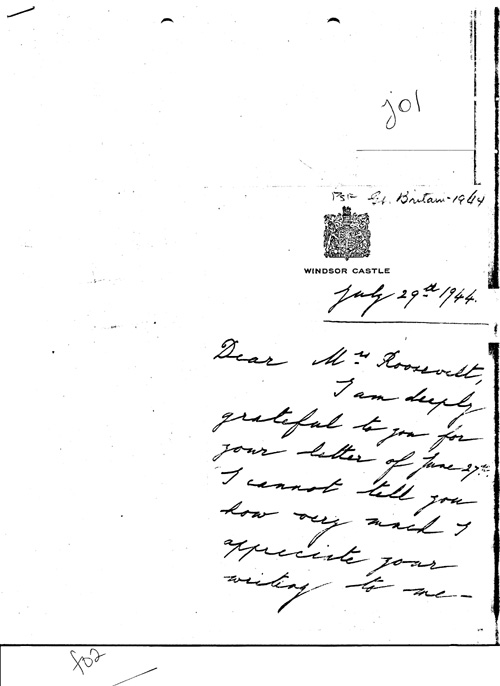 j01
PSF Gt. Britain-1944
WINDSOR CASTLE
July 29th 1944.
Dear Mrs Roosevelt,
I am deeply
grateful to you for
your letter of June 27th
I cannot tell you
how very much I
appreciate your
writing to me—
f02